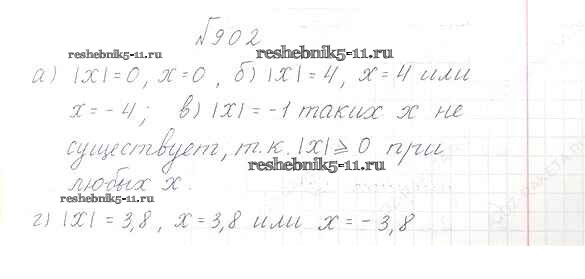 №902
reshebnik5-11.ru reshebnik5-11.ru
а) |x|=0, x=0, б) |x|=4, x=4 или
x=-4; в) |x|=-1 таких x не
существует, т.к. |x|⩾0 при
reshebnik5-11.ru
любых x.
reshebnik5-11.ru
г) |x|=3,8, x=3,8 или x=-3,8